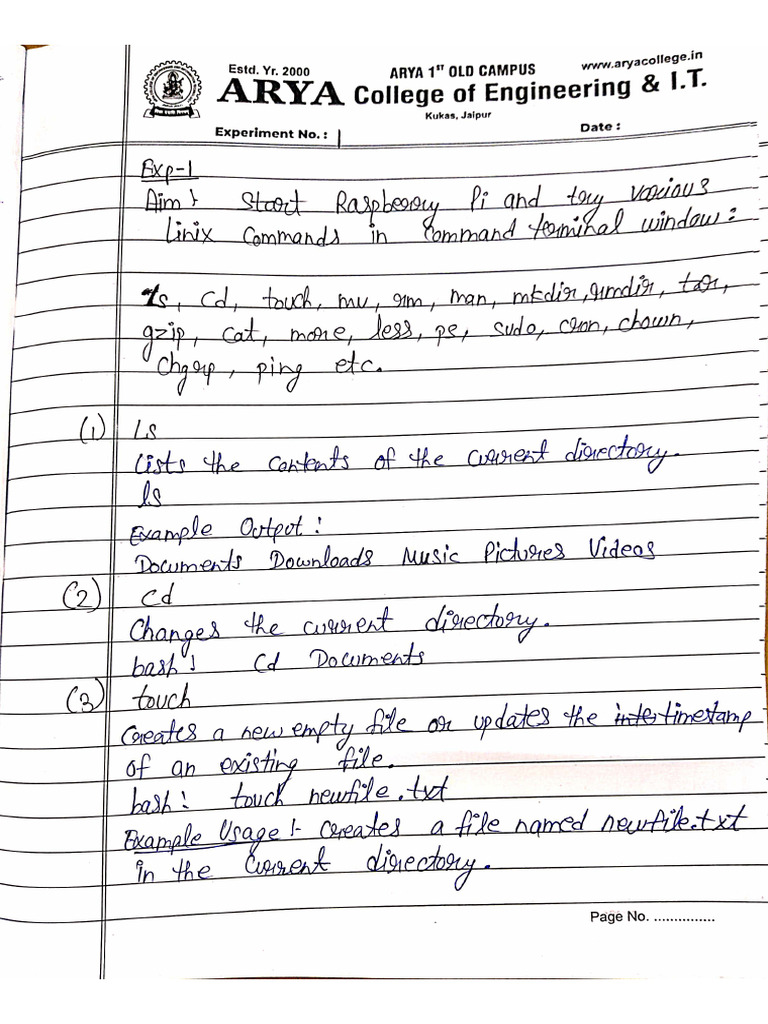 Estd. Yr. 2000 ARYA 1ST OLD CAMPUS www.aryacollege.in
ARYA College of Engineering & I.T.
Kukas, Jaipur
Experiment No. : 1 Date :
Exp-1
Aim :- Start Raspberry Pi and try various
Linix Commands in Command terminal window :
ls, cd, touch, mv, rm, man, mkdir, rmdir, tar,
gzip, cat, more, less, ps, sudo, cron, chown,
chgrp, ping etc.
(1) ls
Lists the contents of the current directory.
ls
Example Output :
Documents Downloads Music Pictures Videos
(2) Cd
Changes the current directory.
bash : Cd Documents
(3) touch
Creates a new empty file or updates the timestamp
of an existing file.
bash : touch newfile.txt
Example Usage :- Creates a file named newfile.txt
in the current directory.
Page No. ...............